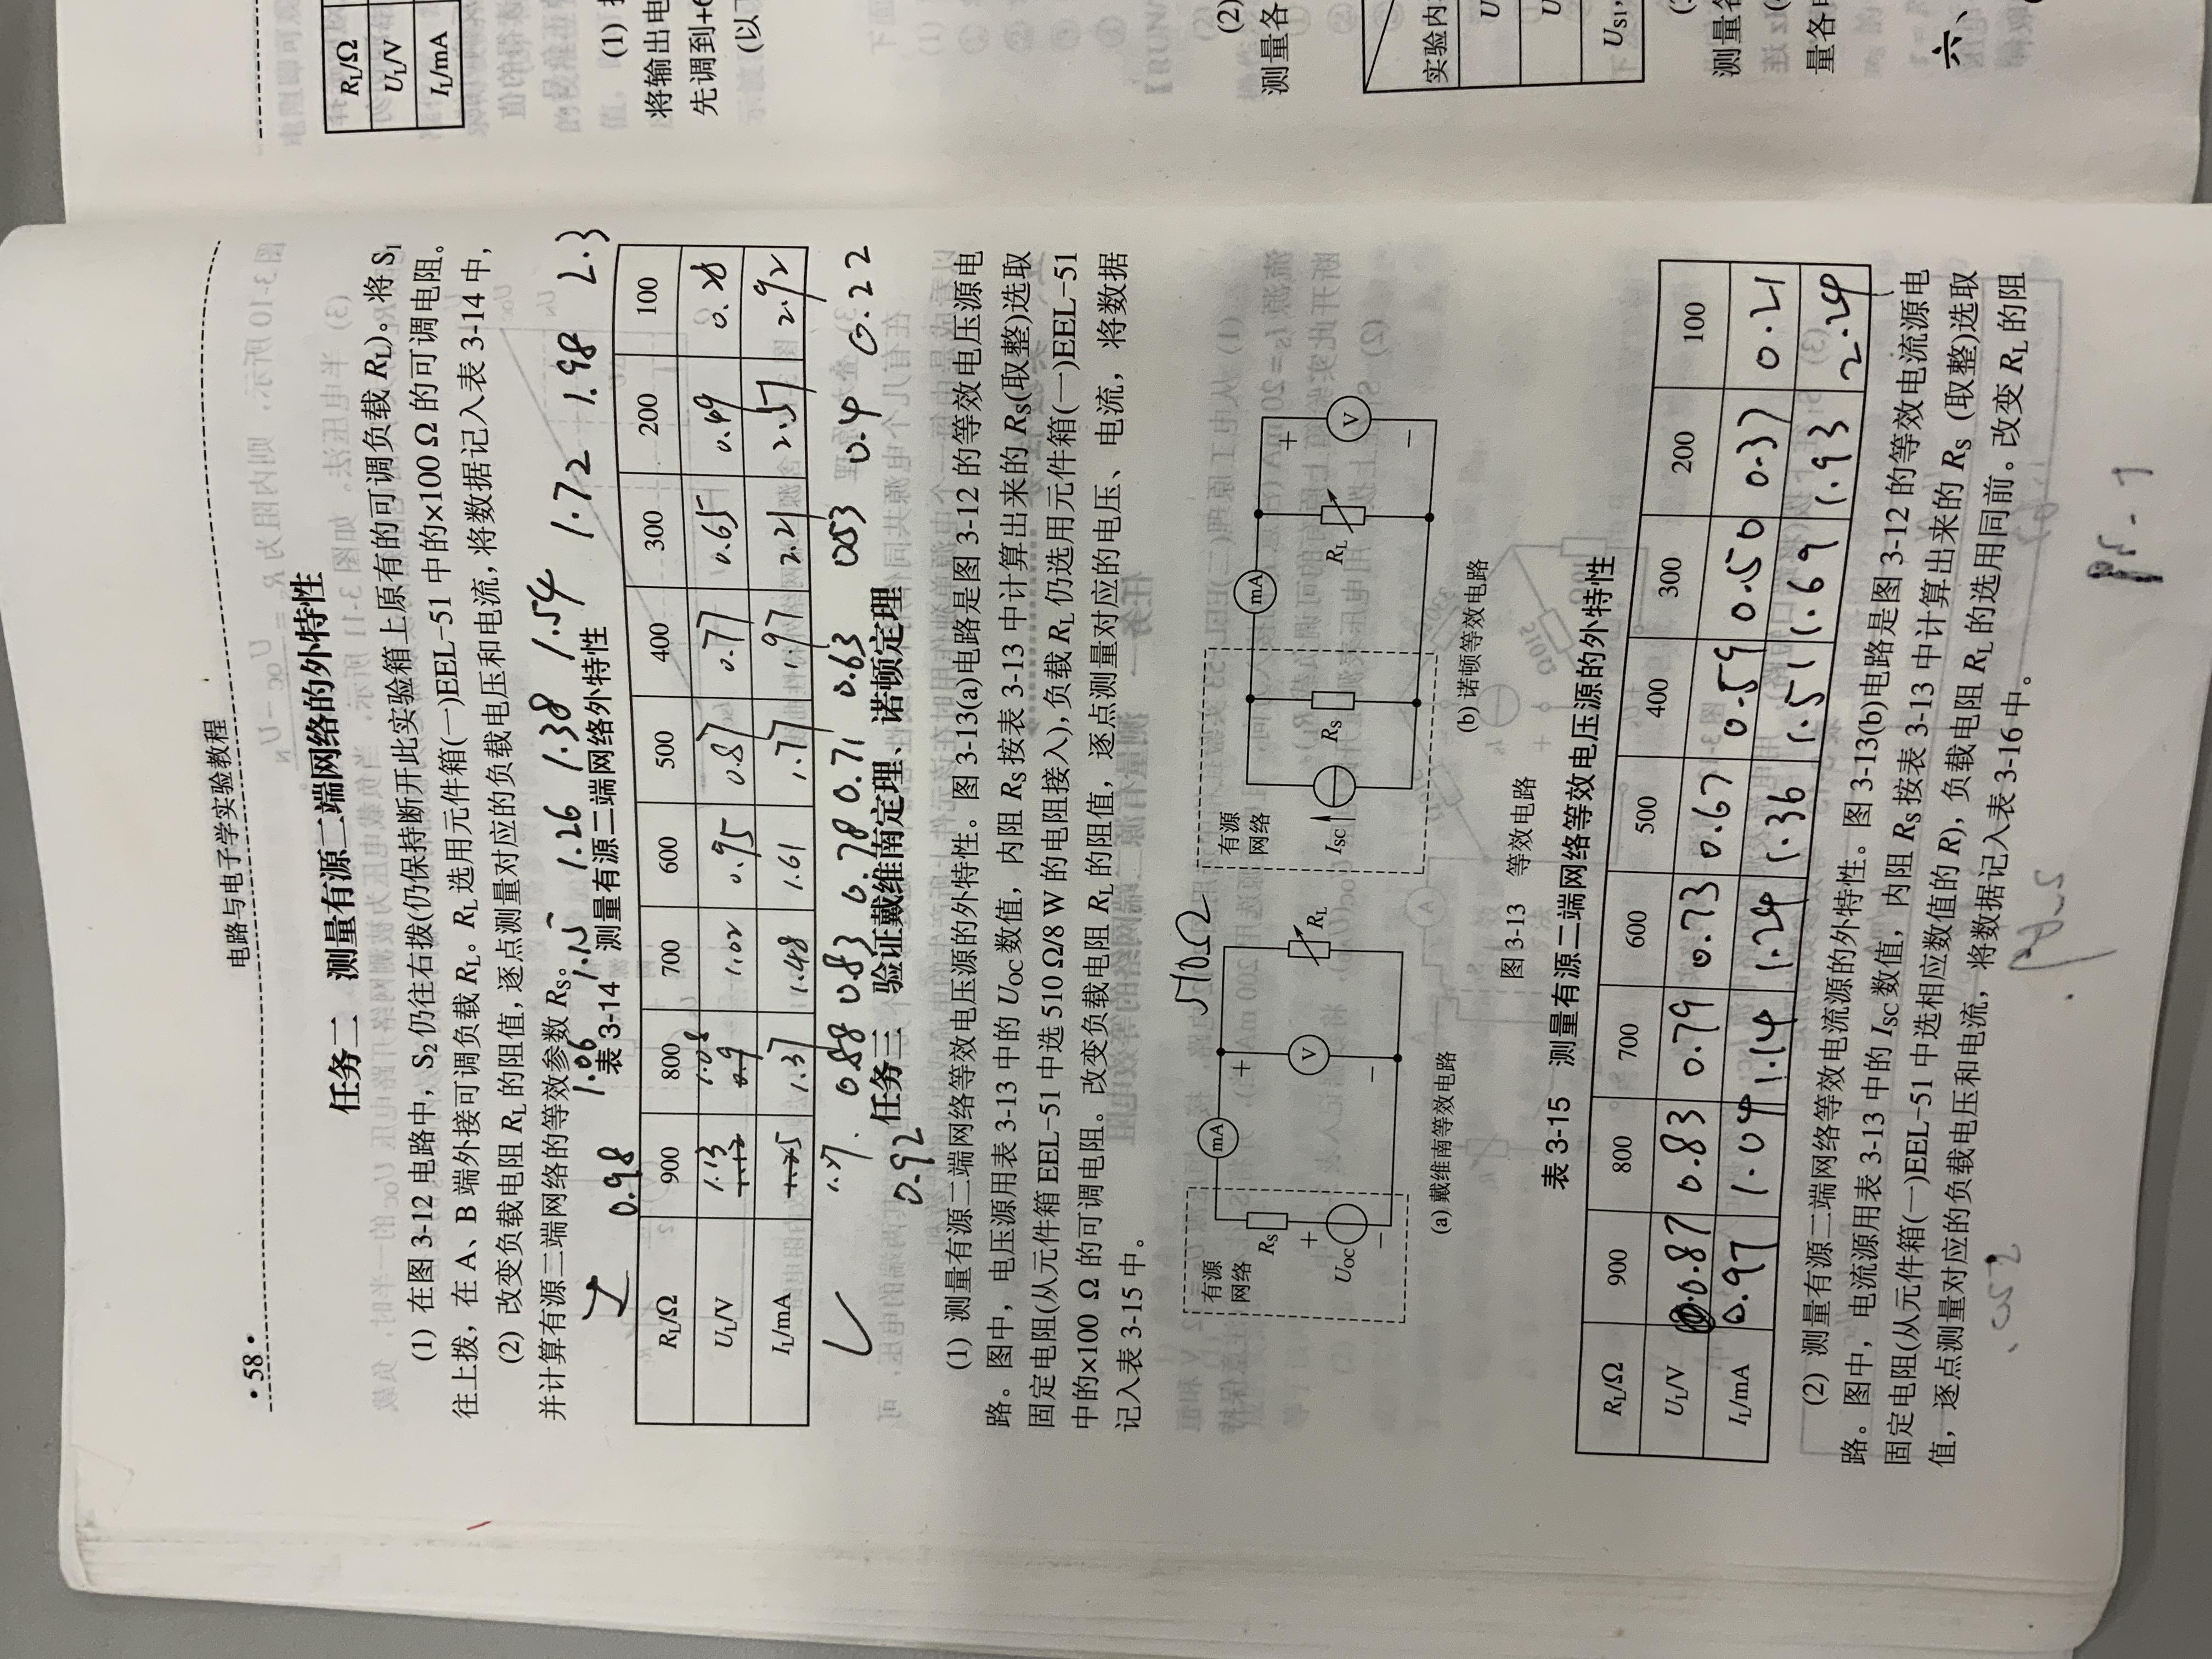 ·58·
电路与电子学实验教程
任务二 测量有源二端网络的外特性
(1) 在图 3-12 电路中，S₂仍往右拨(仍保持断开此实验箱上原有的可调负载 R_L)。将 S₁
往上拨，在 A、B 端外接可调负载 R_L。R_L 选用元件箱(一)EEL-51 中的×100 Ω 的可调电阻。
(2) 改变负载电阻 R_L 的阻值，逐点测量对应的负载电压和电流，将数据记入表 3-14 中，
并计算有源二端网络的等效参数 R_S。
I 0.98 1.06 1.15 1.26 1.38 1.54 1.72 1.98 2.3
表 3-14 测量有源二端网络外特性
R_L/Ω 900 800 700 600 500 400 300 200 100
U_L/V 1.13 1.08 1.02 0.95 0.87 0.77 0.65 0.49
I_L/mA 1.37 1.48 1.61 1.77 1.97 2.21 2.57 2.92
0.92 0.88 0.83 0.78 0.71 0.63 0.53 0.4 0.22
任务三 验证戴维南定理、诺顿定理
(1) 测量有源二端网络等效电压源的外特性。图 3-13(a)电路是图 3-12 的等效电压源电
路。图中，电压源用表 3-13 中的 U_OC 数值，内阻 R_S 按表 3-13 中计算出来的 R_S(取整)选取
固定电阻(从元件箱 EEL-51 中选 510 Ω/8 W 的电阻接入)，负载 R_L 仍选用元件箱(一)EEL-51
中的×100 Ω 的可调电阻。改变负载电阻 R_L 的阻值，逐点测量对应的电压、电流，将数据
记入表 3-15 中。
510Ω
有源
网络
R_S
+
U_OC
−
mA
+
V
−
R_L
(a) 戴维南等效电路
有源
网络
I_SC
R_S
mA
R_L
+
V
−
(b) 诺顿等效电路
图 3-13 等效电路
表 3-15 测量有源二端网络等效电压源的外特性
R_L/Ω 900 800 700 600 500 400 300 200 100
U_L/V 0.87 0.83 0.79 0.73 0.67 0.59 0.50 0.37 0.21
I_L/mA 0.97 1.04 1.14 1.24 1.36 1.51 1.69 1.93 2.24
(2) 测量有源二端网络等效电流源的外特性。图 3-13(b)电路是图 3-12 的等效电流源电
路。图中，电流源用表 3-13 中的 I_SC 数值，内阻 R_S 按表 3-13 中计算出来的 R_S (取整)选取
固定电阻(从元件箱(一)EEL-51 中选相应数值的 R)，负载电阻 R_L 的选用同前。改变 R_L 的阻
值，逐点测量对应的负载电压和电流，将数据记入表 3-16 中。
R_L/Ω
U_L/V
I_L/mA
(1)
将输出电
先调到+6
(以
(2)
测量各
实验内
U
U
U_S1,
测量各
量各
六、